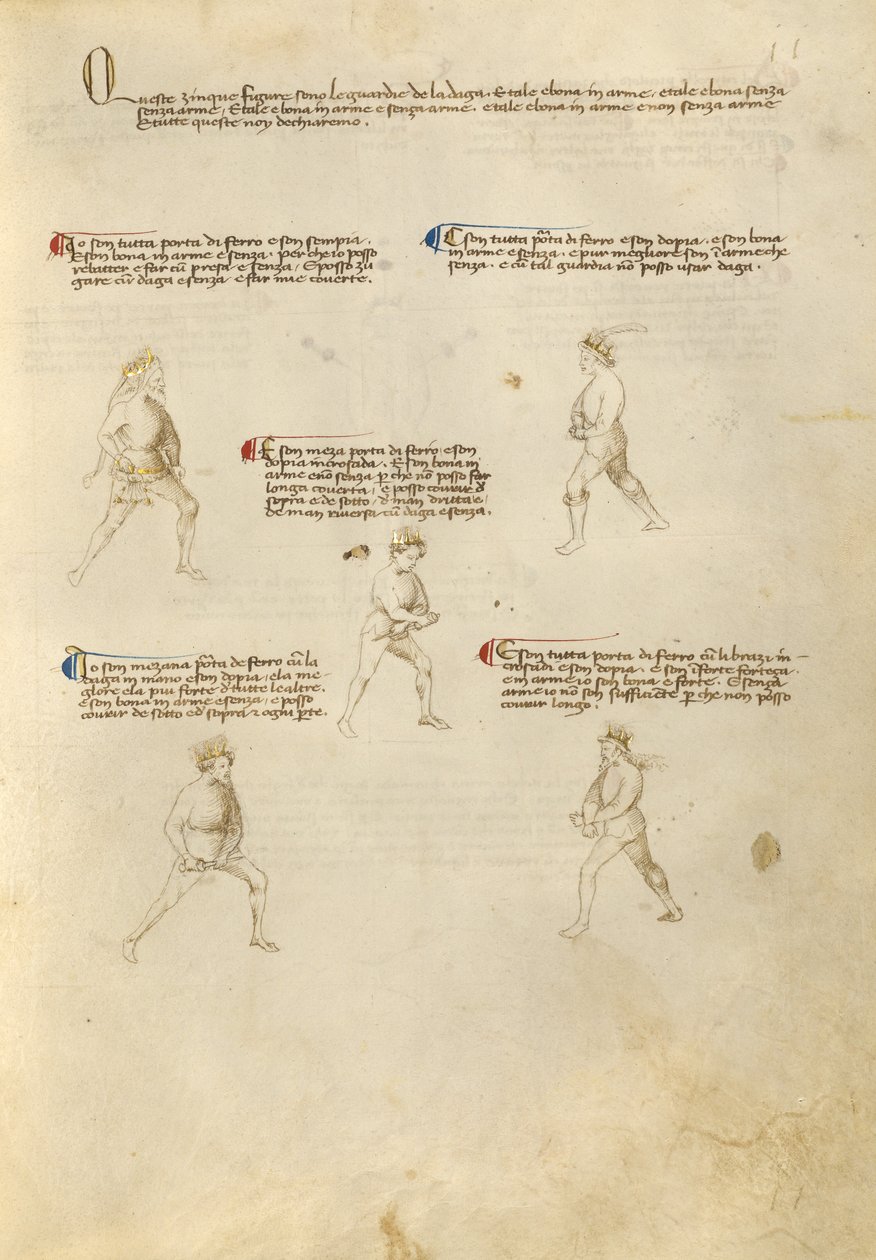 11
Queste zinque figure sono le guardie de la daga. E tale e bona in arme, e tale e bona senza
senza arme, E tale e bona in arme e senza arme. e tale e bona in arme e non senza arme
E tutte queste noy dechiaremo.
Io son tutta porta di ferro e son sempia.
E son bona in arme e senza. per che io posso
rebatter e far cū presa e senza, E posso zu
gare cū daga e senza e far mie coverte.
E son tutta pōta di ferro e son dopia. e son bona
in arme e senza. e pur megliore son ī arme che
senza. e cū tal guardia nō posso usar daga.
E son meza porta di ferro e son
dopia incrosada. E son bona in
arme e nō senza p che nō posso far
longa coverta, e posso covrir d
sopra e de sotto, d man dritta e
de man riversa cū daga e senza.
Io son mezana pōta de ferro cū la
daga in mano e son dopia, e la me-
gliore e la piu forte d tutte le altre.
E son bona in arme e senza, e posso
covrir de sotto ed sopra z ogni pte.
E son tutta porta di ferro cū li brazi in-
crosadi e son dopia. e son ī forte forteça.
e in arme io son bona e forte. E sença
arme io nō son sufficiēte p che non posso
covrir longo.
11